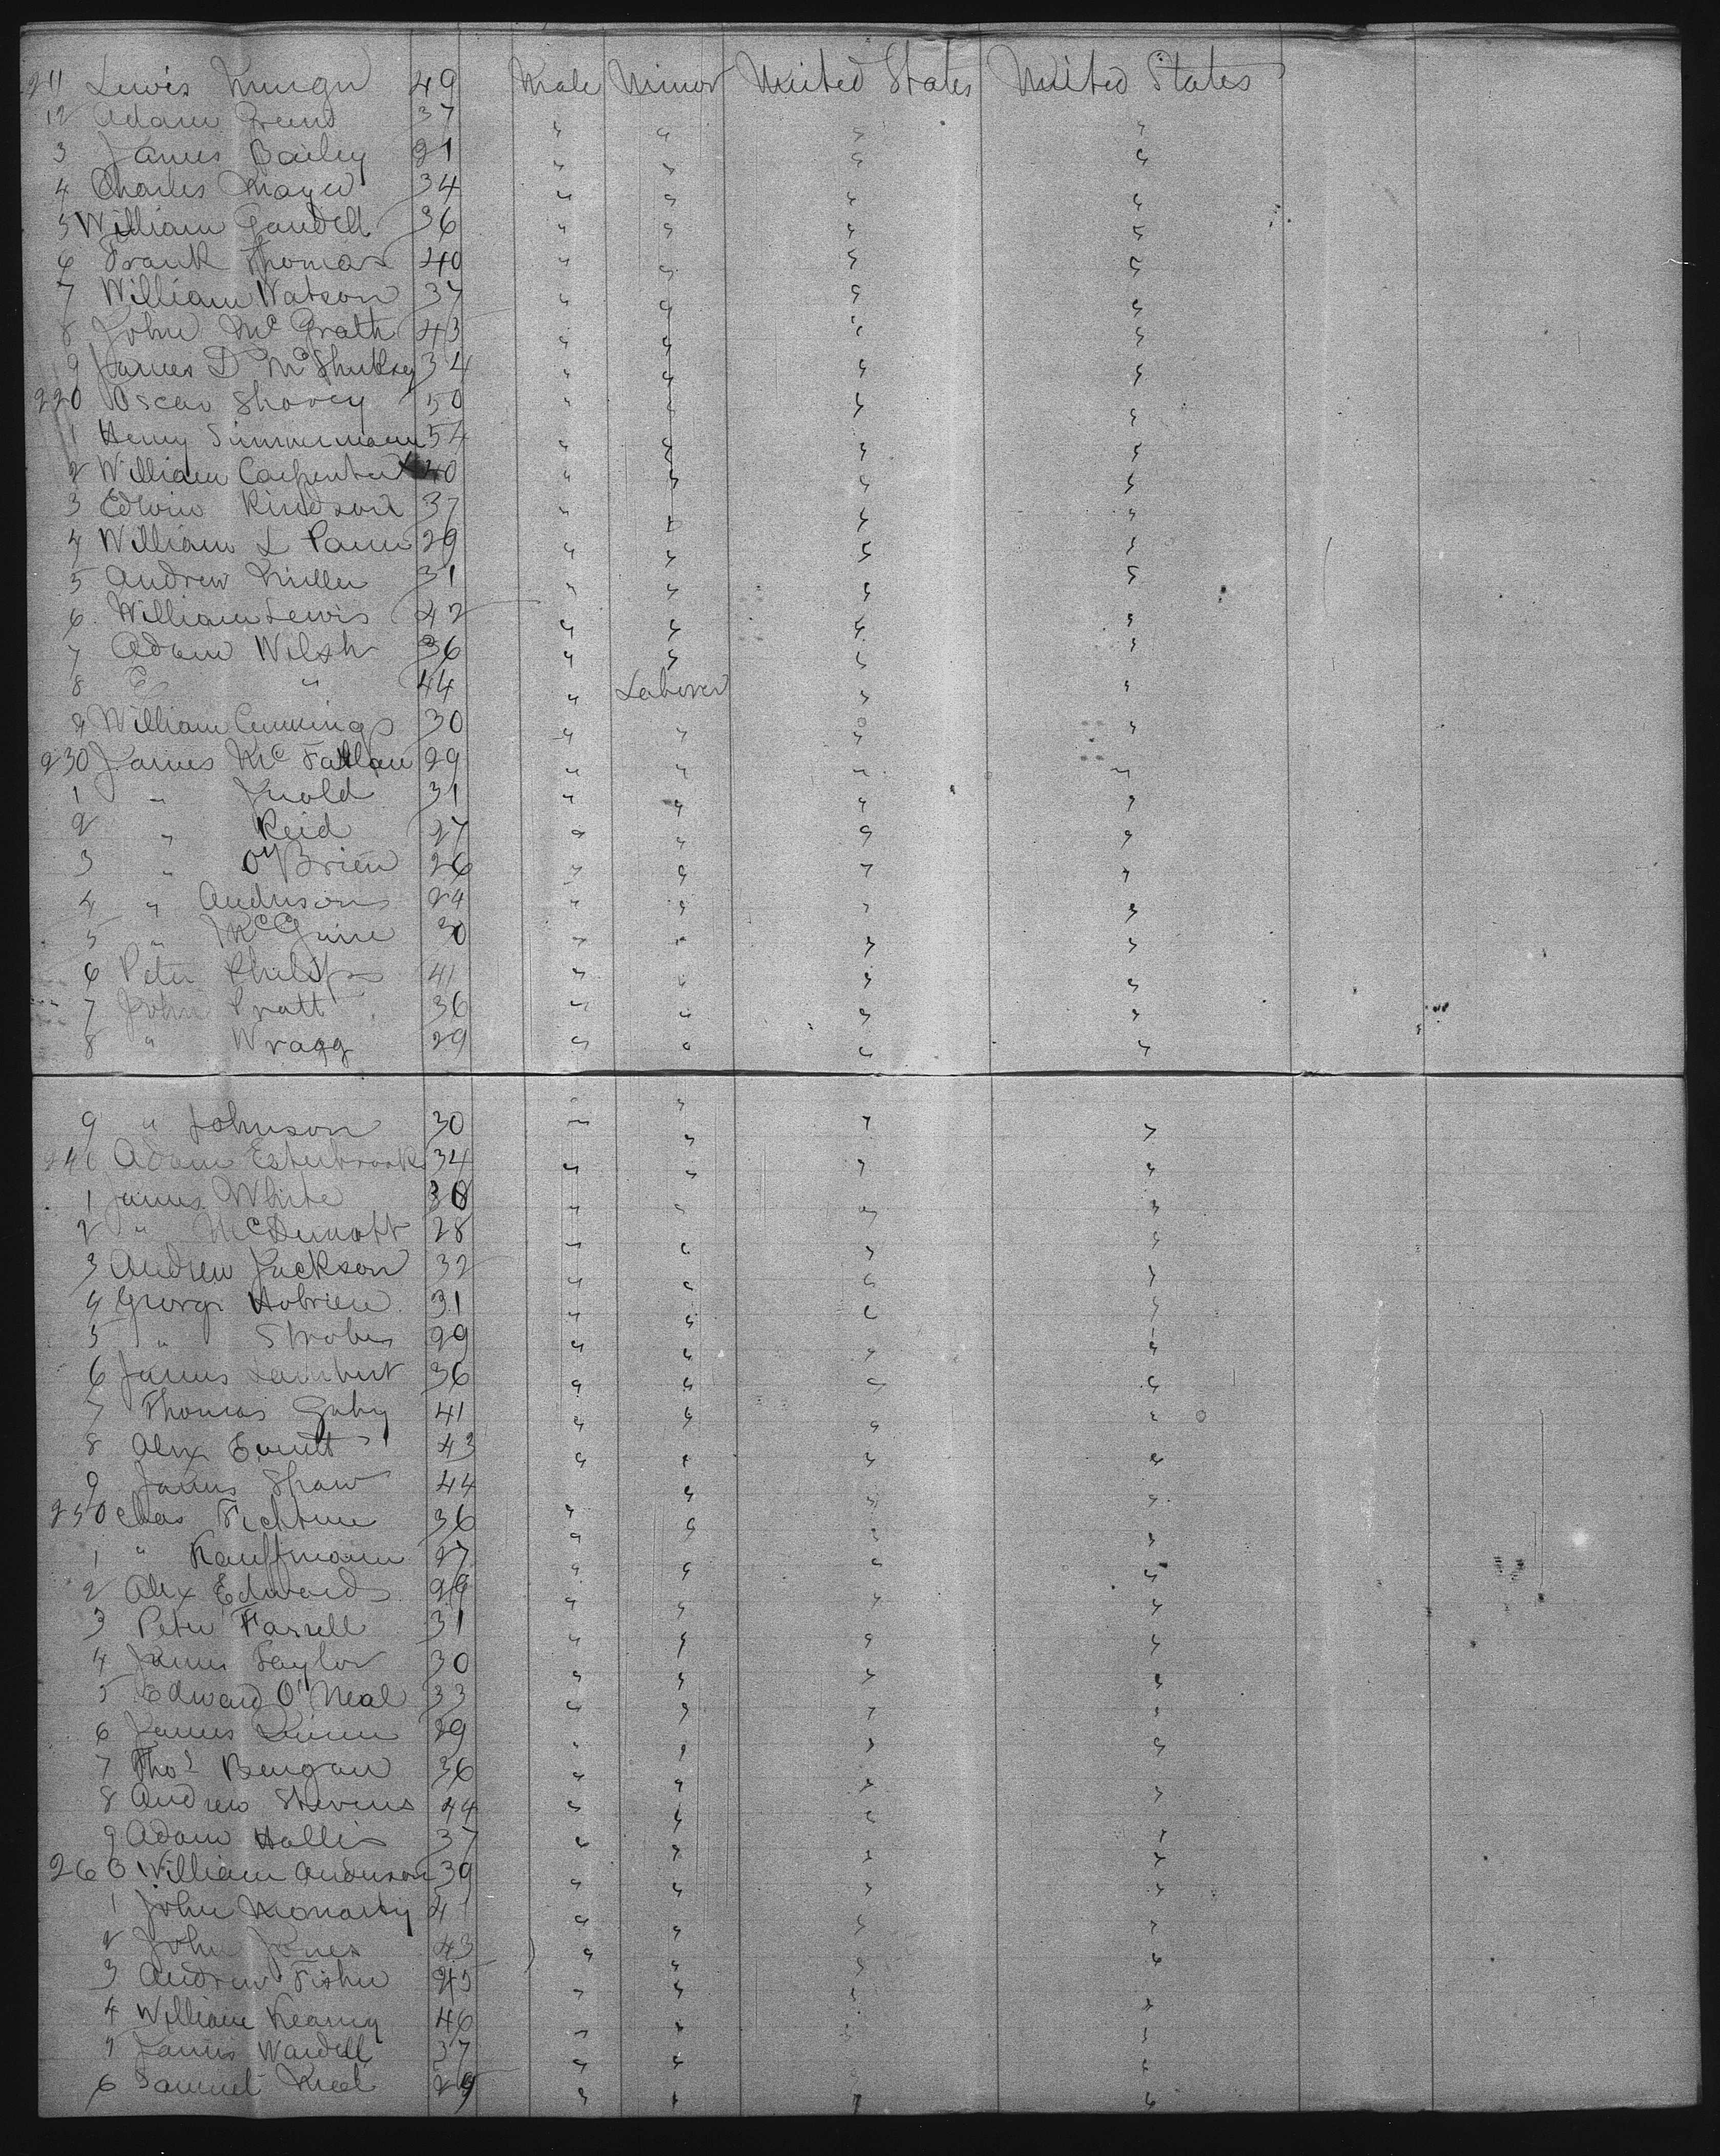 211 Lewis 49 Male Minor United States United States
12 Adam Green 37 " " " "
3 James Bailey 21 " " " "
4 Charles Mayer 34 " " " "
5 William Gandell 36 " " " "
6 Frank Thomas 40 " " " "
7 William Watson 37 " " " "
8 John McGrath 43 " " " "
9 James D 34 " " " "
220 Oscar Shovey 50 " " " "
1 Henry Simmermann 54 " " " "
2 William Carpenter 40 " " " "
3 Edwin Kindson 37 " " " "
4 William L 29 " " " "
5 Andrew Miller 31 " " " "
6 William Lewis 42 " " " "
7 Adam Welsh 36 " " " "
8 E " 44 " Laborer " "
9 William Cummings 30 " " " "
230 James 29 " " " "
1 " 31 " " " "
2 " Reid 27 " " " "
3 " O'Brien 26 " " " "
4 " Anderson 24 " " " "
5 " McGuire 30 " " " "
6 Peter Philips 41 " " " "
7 John Pratt 36 " " " "
8 " Wragg 29 " " " "
9 " Johnson 30 " " " "
240 Adam Esterbrook 34 " " " "
1 James White 38 " " " "
2 " McDermott 28 " " " "
3 Andrew Jackson 32 " " " "
4 George 31 " " " "
5 " 29 " " " "
6 James Lambert 36 " " " "
7 Thomas 41 " " " "
8 Alex Everett 43 " " " "
9 James Shaw 44 " " " "
250 Chas 36 " " " "
1 " Kauffmann 27 " " " "
2 Alex Edwards 29 " " " "
3 Peter Farrell 31 " " " "
4 James Taylor 30 " " " "
5 Edward O'Neal 33 " " " "
6 James Quinn 29 " " " "
7 Thos 36 " " " "
8 Andrew Stevens 44 " " " "
9 Adam Hollis 37 " " " "
260 William Anderson 39 " " " "
1 John Moriarty 41 " " " "
2 John Jones 43 " " " "
3 Andrew Fisher 45 " " " "
4 William Kearny 46 " " " "
5 James Wardell 37 " " " "
6 Samuel 29 " " " "